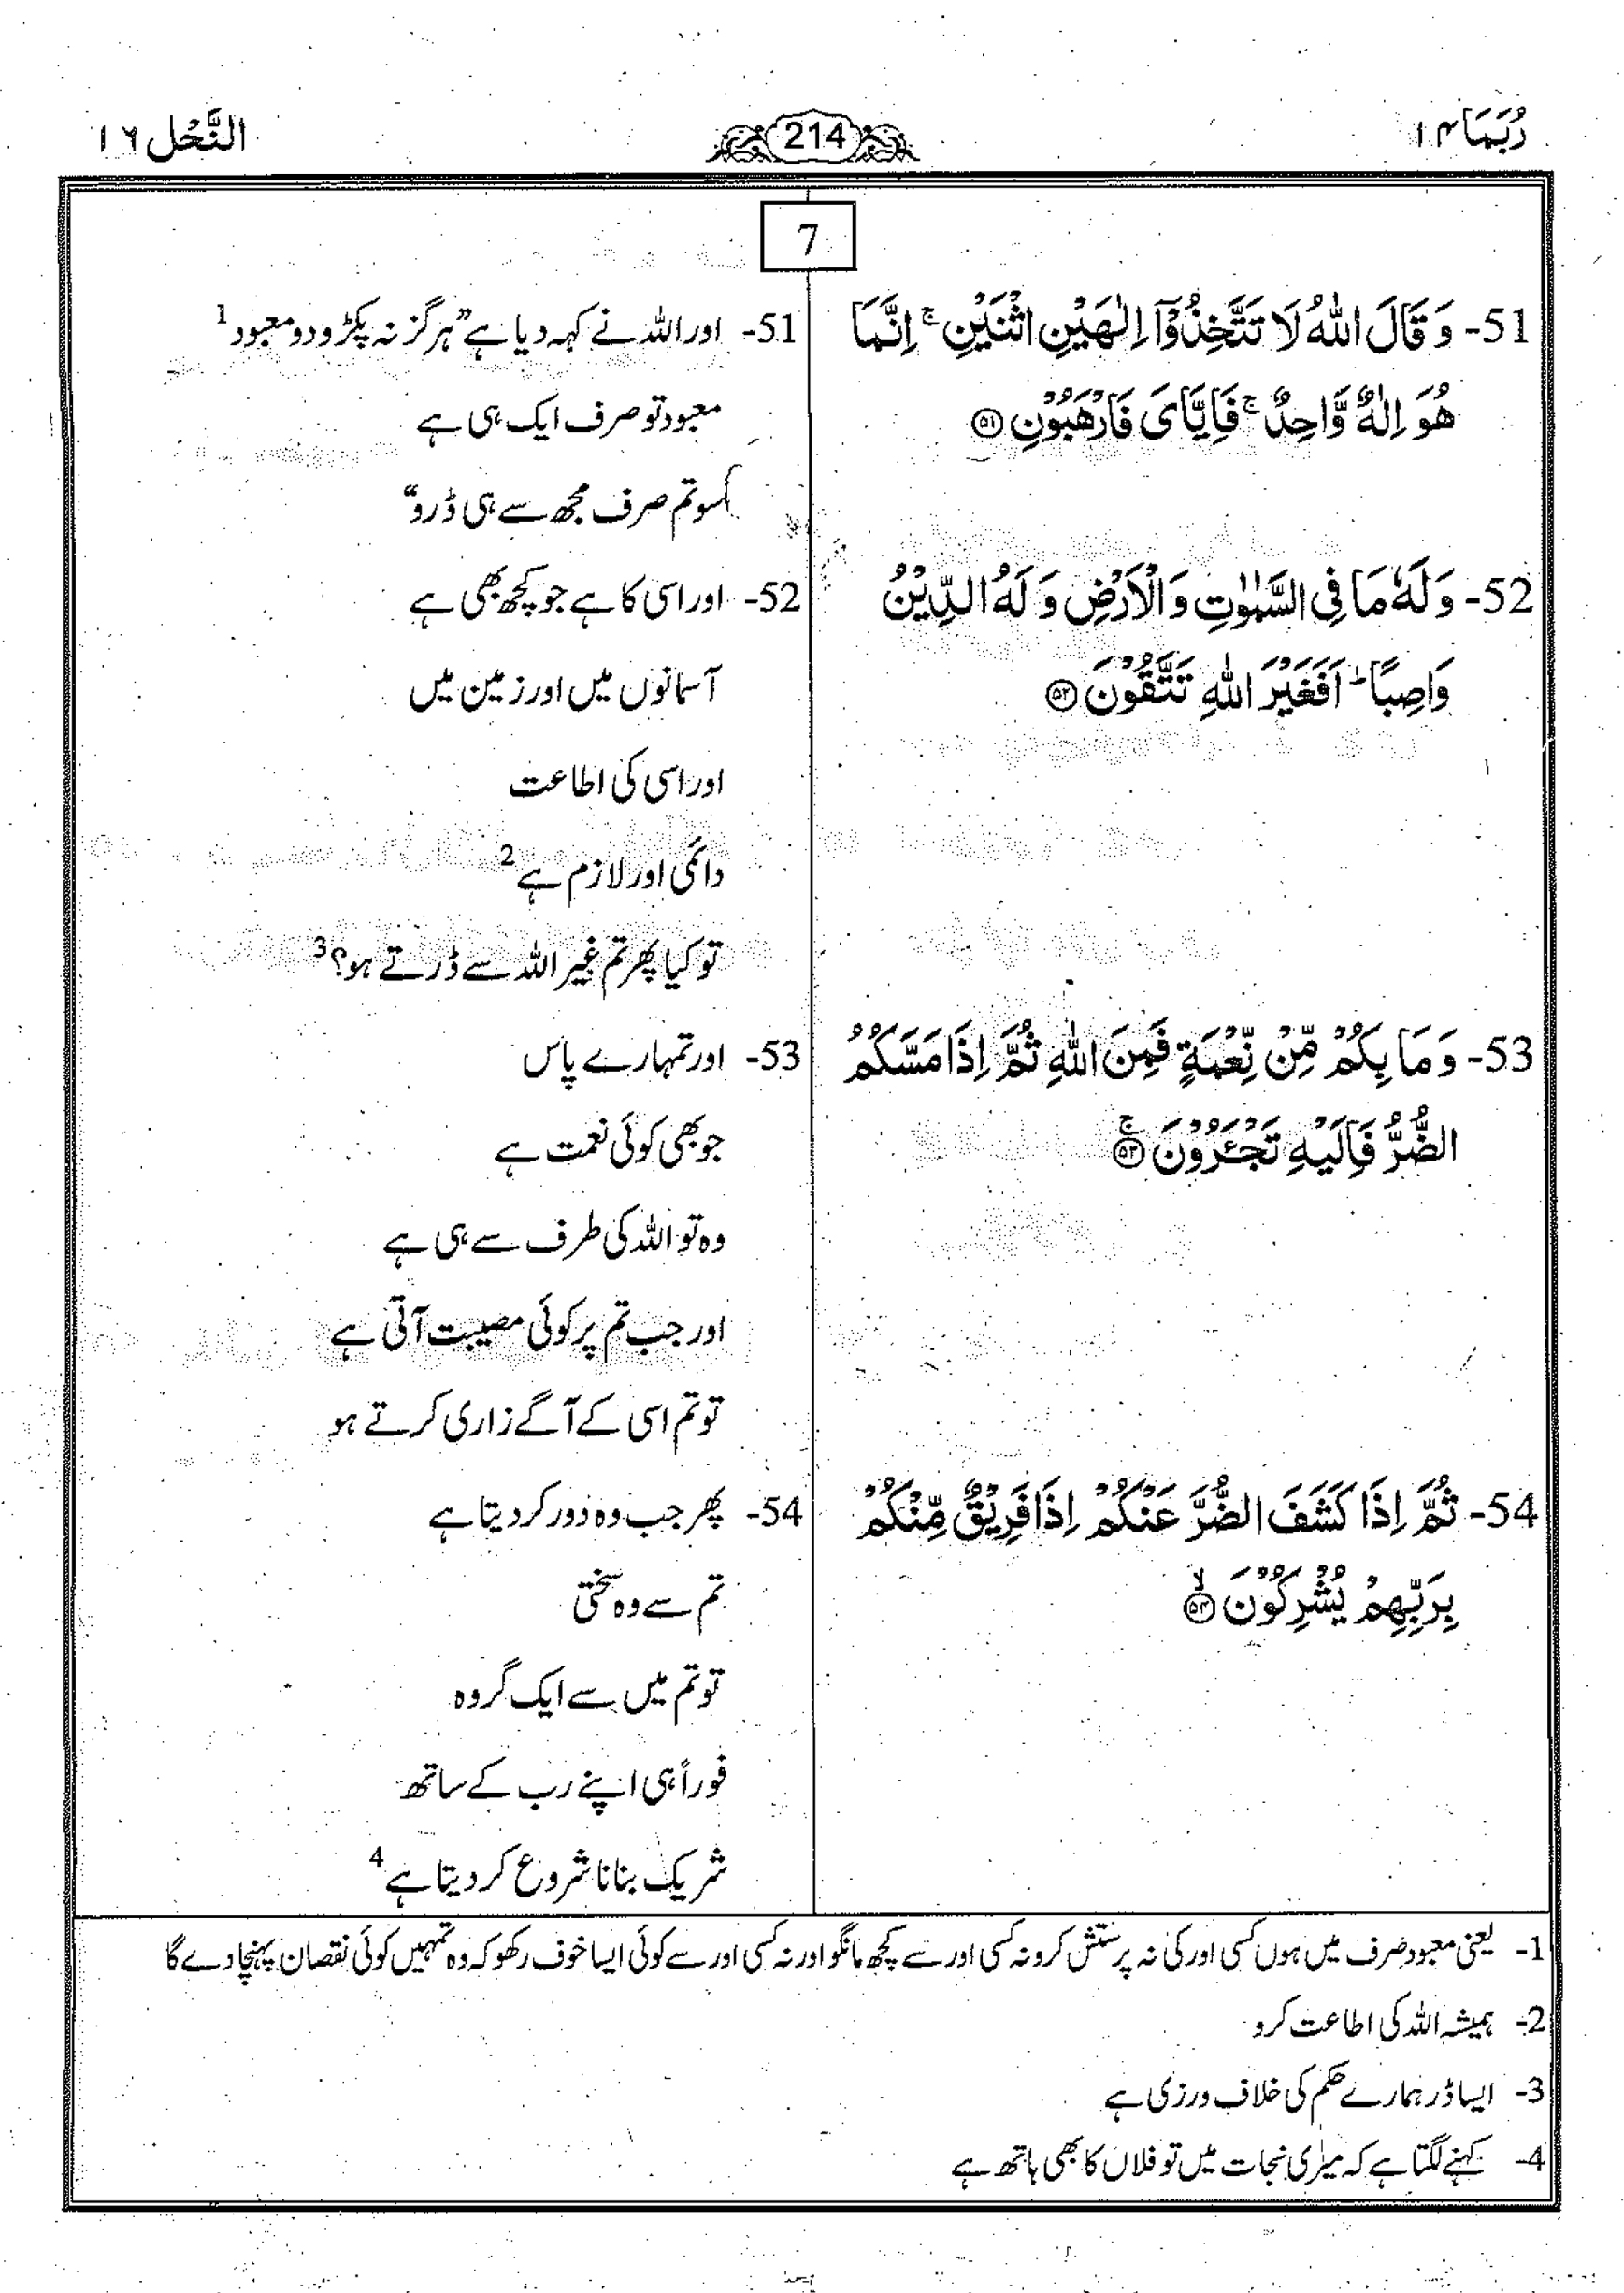 رُبَمَا ۱۴
214
النَّحْل ۱۶
7
51- وَ قَالَ اللّٰهُ لَا تَتَّخِذُوْۤا اِلٰهَیْنِ اثْنَیْنِ ۚ اِنَّمَا
هُوَ اِلٰهٌ وَّاحِدٌ ۚ فَاِیَّایَ فَارْهَبُوْنِ ﴿۵۱﴾
52- وَ لَهٗ مَا فِی السَّمٰوٰتِ وَ الْاَرْضِ وَ لَهُ الدِّیْنُ
وَاصِبًا ؕ اَفَغَیْرَ اللّٰهِ تَتَّقُوْنَ ﴿۵۲﴾
53- وَ مَا بِكُمْ مِّنْ نِّعْمَةٍ فَمِنَ اللّٰهِ ثُمَّ اِذَا مَسَّكُمُ
الضُّرُّ فَاِلَیْهِ تَجْـَٔرُوْنَ ﴿۵۳﴾ۚ
54- ثُمَّ اِذَا كَشَفَ الضُّرَّ عَنْكُمْ اِذَا فَرِیْقٌ مِّنْكُمْ
بِرَبِّهِمْ یُشْرِكُوْنَ ﴿۵۴﴾ۙ
51- اور اللہ نے کہہ دیا ہے ”ہرگز نہ پکڑو دو معبود 1
معبود تو صرف ایک ہی ہے
سو تم صرف مجھ سے ہی ڈرو“
52- اور اسی کا ہے جو کچھ بھی ہے
آسمانوں میں اور زمین میں
اور اسی کی اطاعت
دائمی اور لازم ہے 2
تو کیا پھر تم غیر اللہ سے ڈرتے ہو؟ 3
53- اور تمہارے پاس
جو بھی کوئی نعمت ہے
وہ تو اللہ کی طرف سے ہی ہے
اور جب تم پر کوئی مصیبت آتی ہے
تو تم اسی کے آگے زاری کرتے ہو
54- پھر جب وہ دور کر دیتا ہے
تم سے وہ سختی
تو تم میں سے ایک گروہ
فوراً ہی اپنے رب کے ساتھ
شریک بنانا شروع کر دیتا ہے 4
1- یعنی معبود صرف میں ہوں کسی اور کی نہ پرستش کرو نہ کسی اور سے کچھ مانگو اور نہ کسی اور سے کوئی ایسا خوف رکھو کہ وہ تمہیں کوئی نقصان پہنچا دے گا
2- ہمیشہ اللہ کی اطاعت کرو
3- ایسا ڈر ہمارے حکم کی خلاف ورزی ہے
4- کہنے لگتا ہے کہ میری نجات میں تو فلاں کا بھی ہاتھ ہے